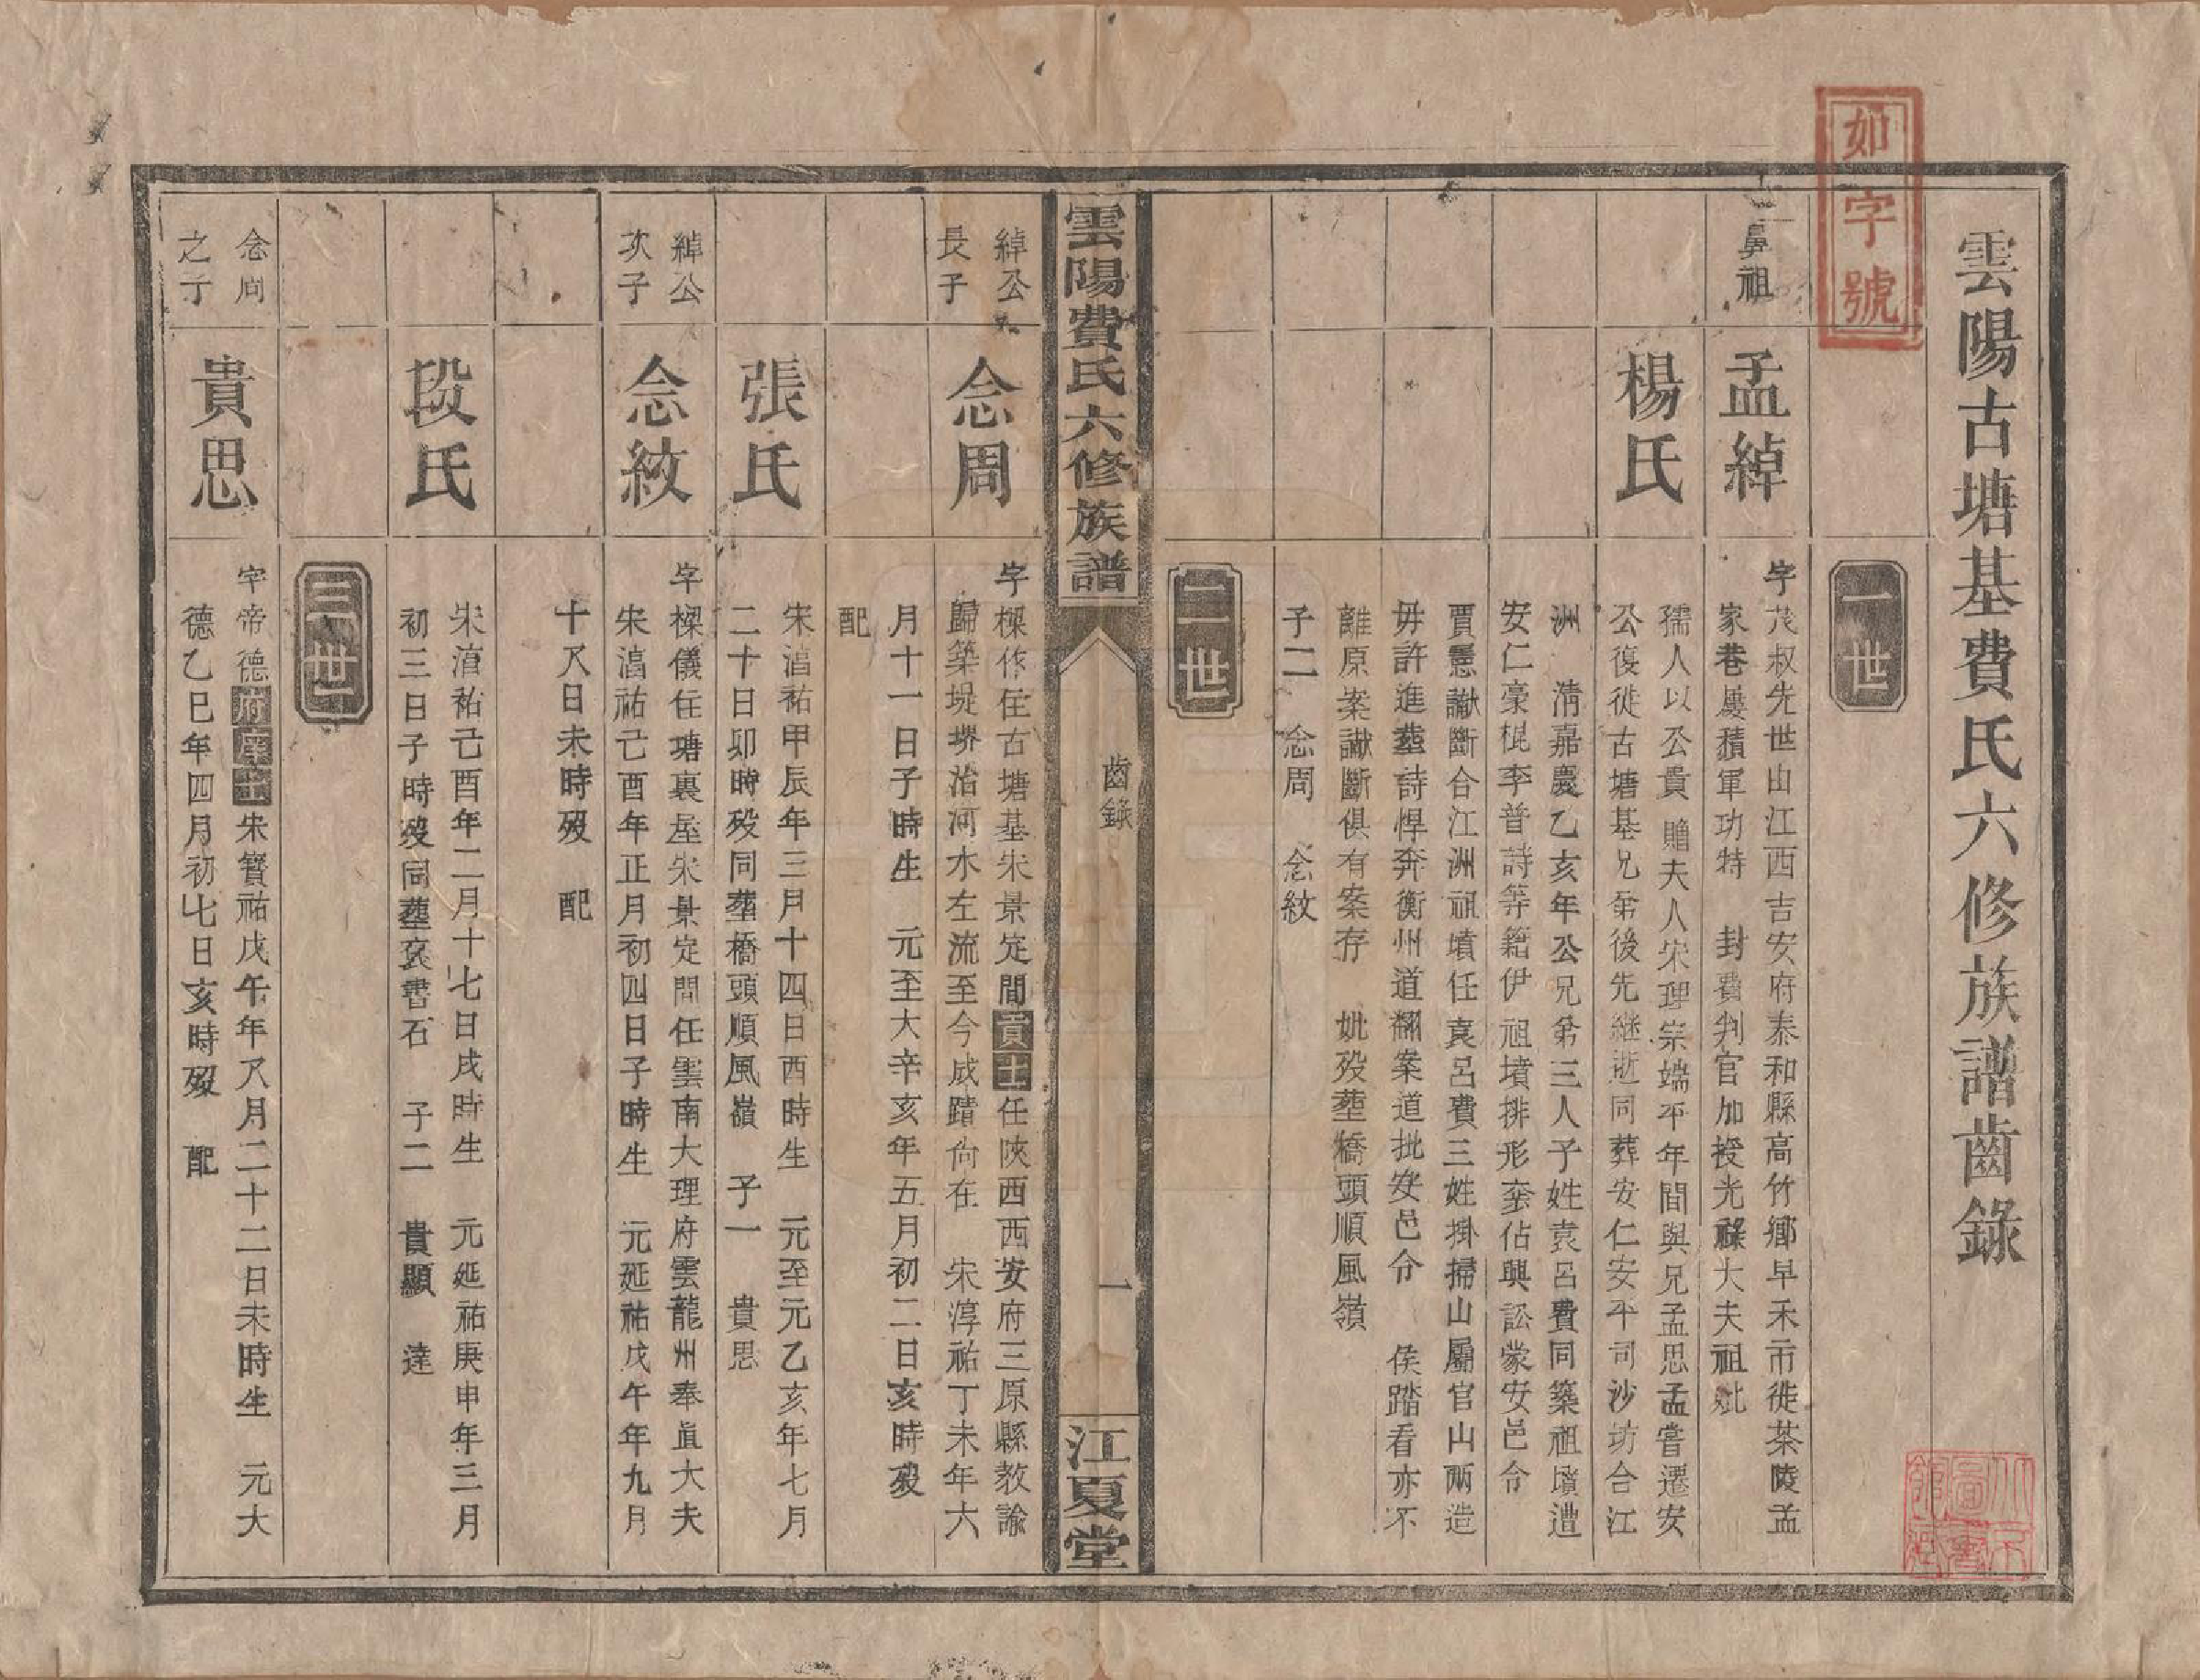 雲陽古塘基費氏六修族譜齒錄
如字號
一世
鼻祖
孟綽
字茂叔先世山江西吉安府泰和縣高竹鄉早禾市徙茶陵孟
家巷屢積軍功特　封費判官加授光祿大夫祖妣
楊氏
孺人以公貴　贈夫人宋理宗端平年間與兄孟思孟嘗遷安
公復徙古塘基兄弟後先繼逝同葬安仁安平司沙坊合江
洲　清嘉慶乙亥年公兄弟三人子姓袁呂費同築祖墳遭
安仁豪棍李普詩等籍伊祖墳排形塋佔興訟蒙安邑令
賈憲讞斷合江洲祖墳任袁呂費三姓掛掃山屬官山兩造
毋許進塟詩悍奔衡州道翻案道批安邑令　侯踏看亦不
離原案讞斷俱有案存　妣歿塟橋頭順風嶺
子二　念周　念紋
二世
雲陽費氏六修族譜
齒錄
一
江夏堂
綽公
長子
念周
字樑作住古塘基宋景定間貢士任陝西西安府三原縣教諭
歸築堤堺治河水左流至今成蹟尙在　宋淳祐丁未年六
月十一日子時生　元至大辛亥年五月初二日亥時歿
配
張氏
宋淳祐甲辰年三月十四日酉時生　元至元乙亥年七月
二十日卯時歿同塟橋頭順風嶺　子一　貴思
綽公
次子
念紋
字樑儀任塘裏屋宋景定間任雲南大理府雲龍州奉直大夫
宋淳祐己酉年正月初四日子時生　元延祐戊午年九月
十八日未時歿　配
段氏
宋淳祐己酉年二月十七日戌時生　元延祐庚申年三月
初三日子時歿同塟袞書石　子二　貴顯　達
三世
念周
之子
貴思
字帝德府庠士宋寶祐戊午年八月二十二日未時生　元大
德乙巳年四月初七日亥時歿　配